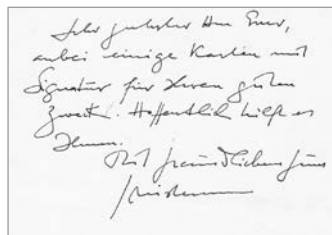 Sehr geehrter Herr
anbei einige Karten mit
Signatur für Ihren guten
Zweck. Hoffentlich hilft es
Ihnen.
Mit freundlichem Gruss